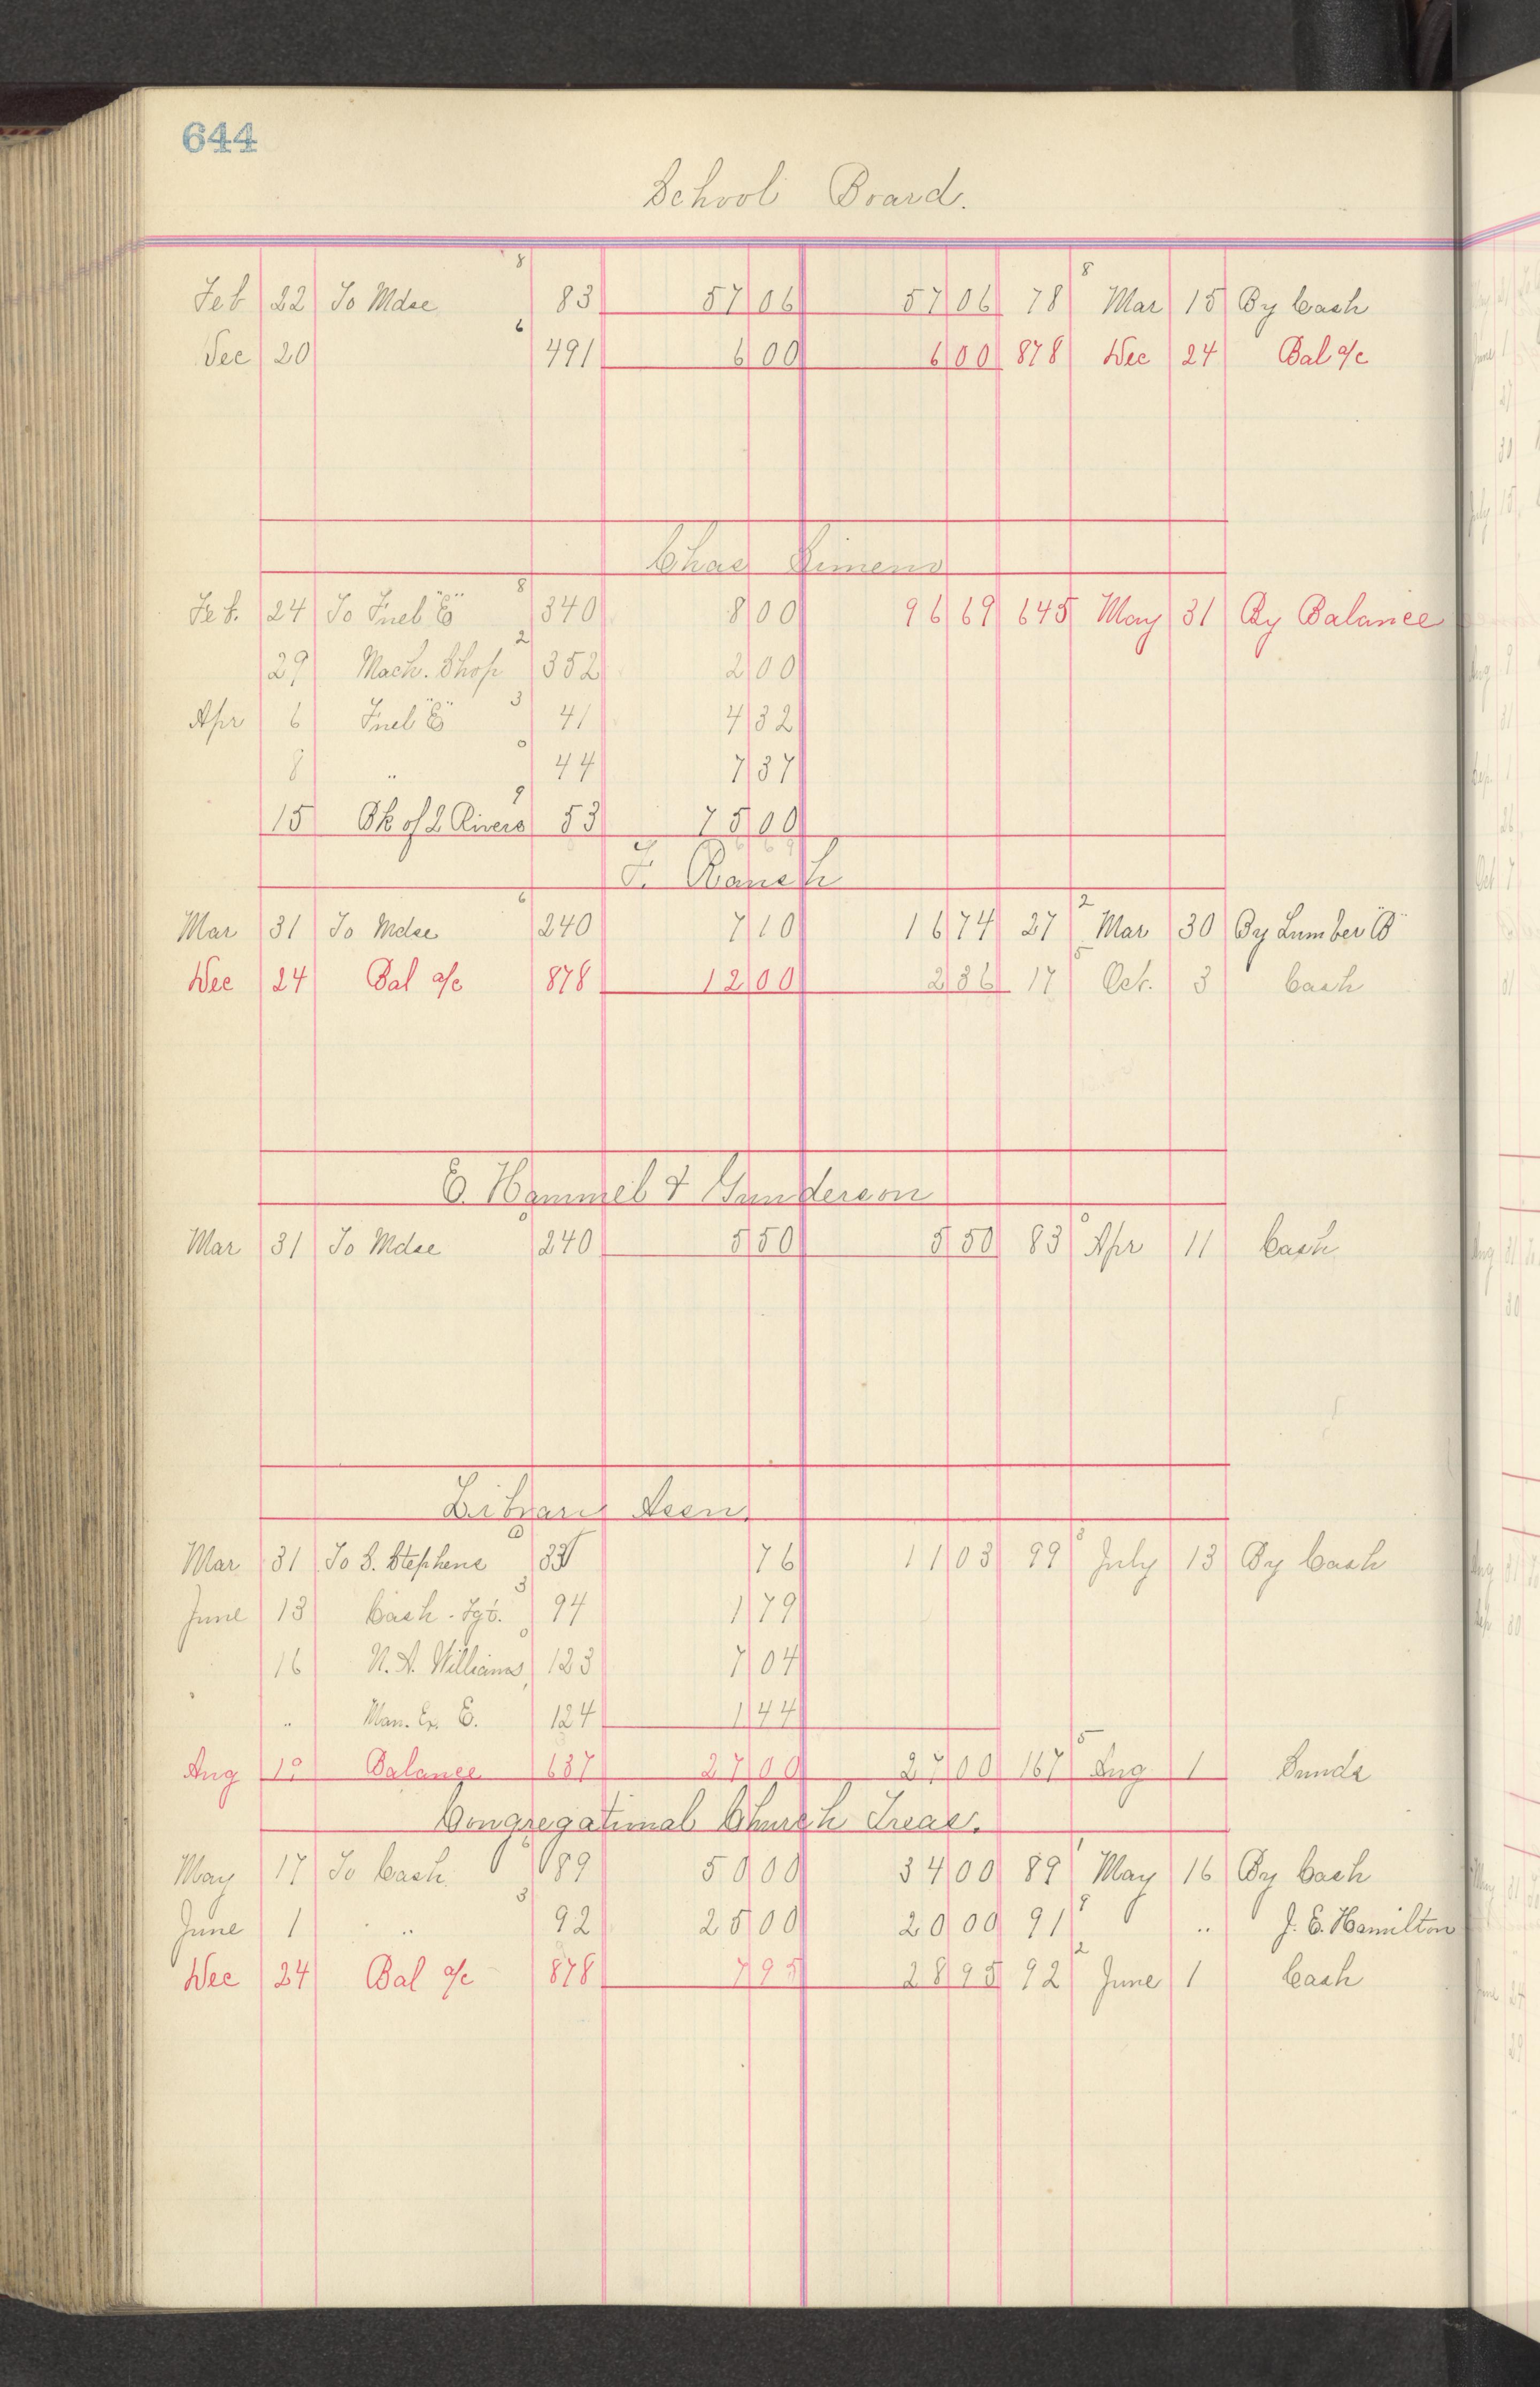 644
School Board.
8 8
Feb 22 To Mdse 83 57 06 57 06 78 Mar 15 By Cash
6
Dec 20 491 6 00 6 00 878 Dec 24 Bal a/c
Chas Simens
8
Feb. 24 To Fuel "E" 340 8 00 96 69 645 May 31 By Balance
2
29 Mach. Shop 352 2 00
3
Apr 6 Fuel "E" 41 4 32
0
8 " 44 7 37
9
15 Bk of 2 Rivers 53 75 00
F. Ransh
6 2
Mar 31 To Mdse 240 7 10 16 74 27 Mar 30 By Lumber "B"
5
Dec 24 Bal a/c 878 12 00 2 36 17 Oct. 3 Cash
E. Hammel & Gunderson
0 0
Mar 31 To Mdse 240 5 50 5 50 83 Apr 11 Cash
Library Assn.
Mar 31 To S. Stephens 33 76 11 03 99 July 13 By Cash
3
June 13 Cash - Fgt. 94 1 79
0
16 N. A. Williams, 123 7 04
" Man. Ex. E. 124 1 44
5
Aug 1 Balance 637 27 00 27 00 167 Aug 1 Sunds
Congregational Church Treas.
1
May 17 To Cash 89 50 00 34 00 89 May 16 By Cash
3 9
June 1 " 92 25 00 20 00 91 " J. E. Hamilton
2
Dec 24 Bal a/c 878 7 95 28 95 92 June 1 Cash